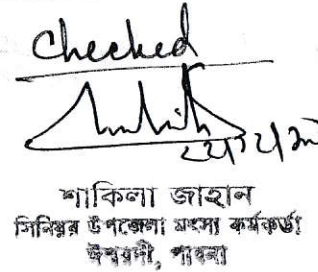 Checked
শাকিলা জাহান
সিনিয়র উপজেলা মৎস্য কর্মকর্তা
ঈশ্বরদী, পাবনা